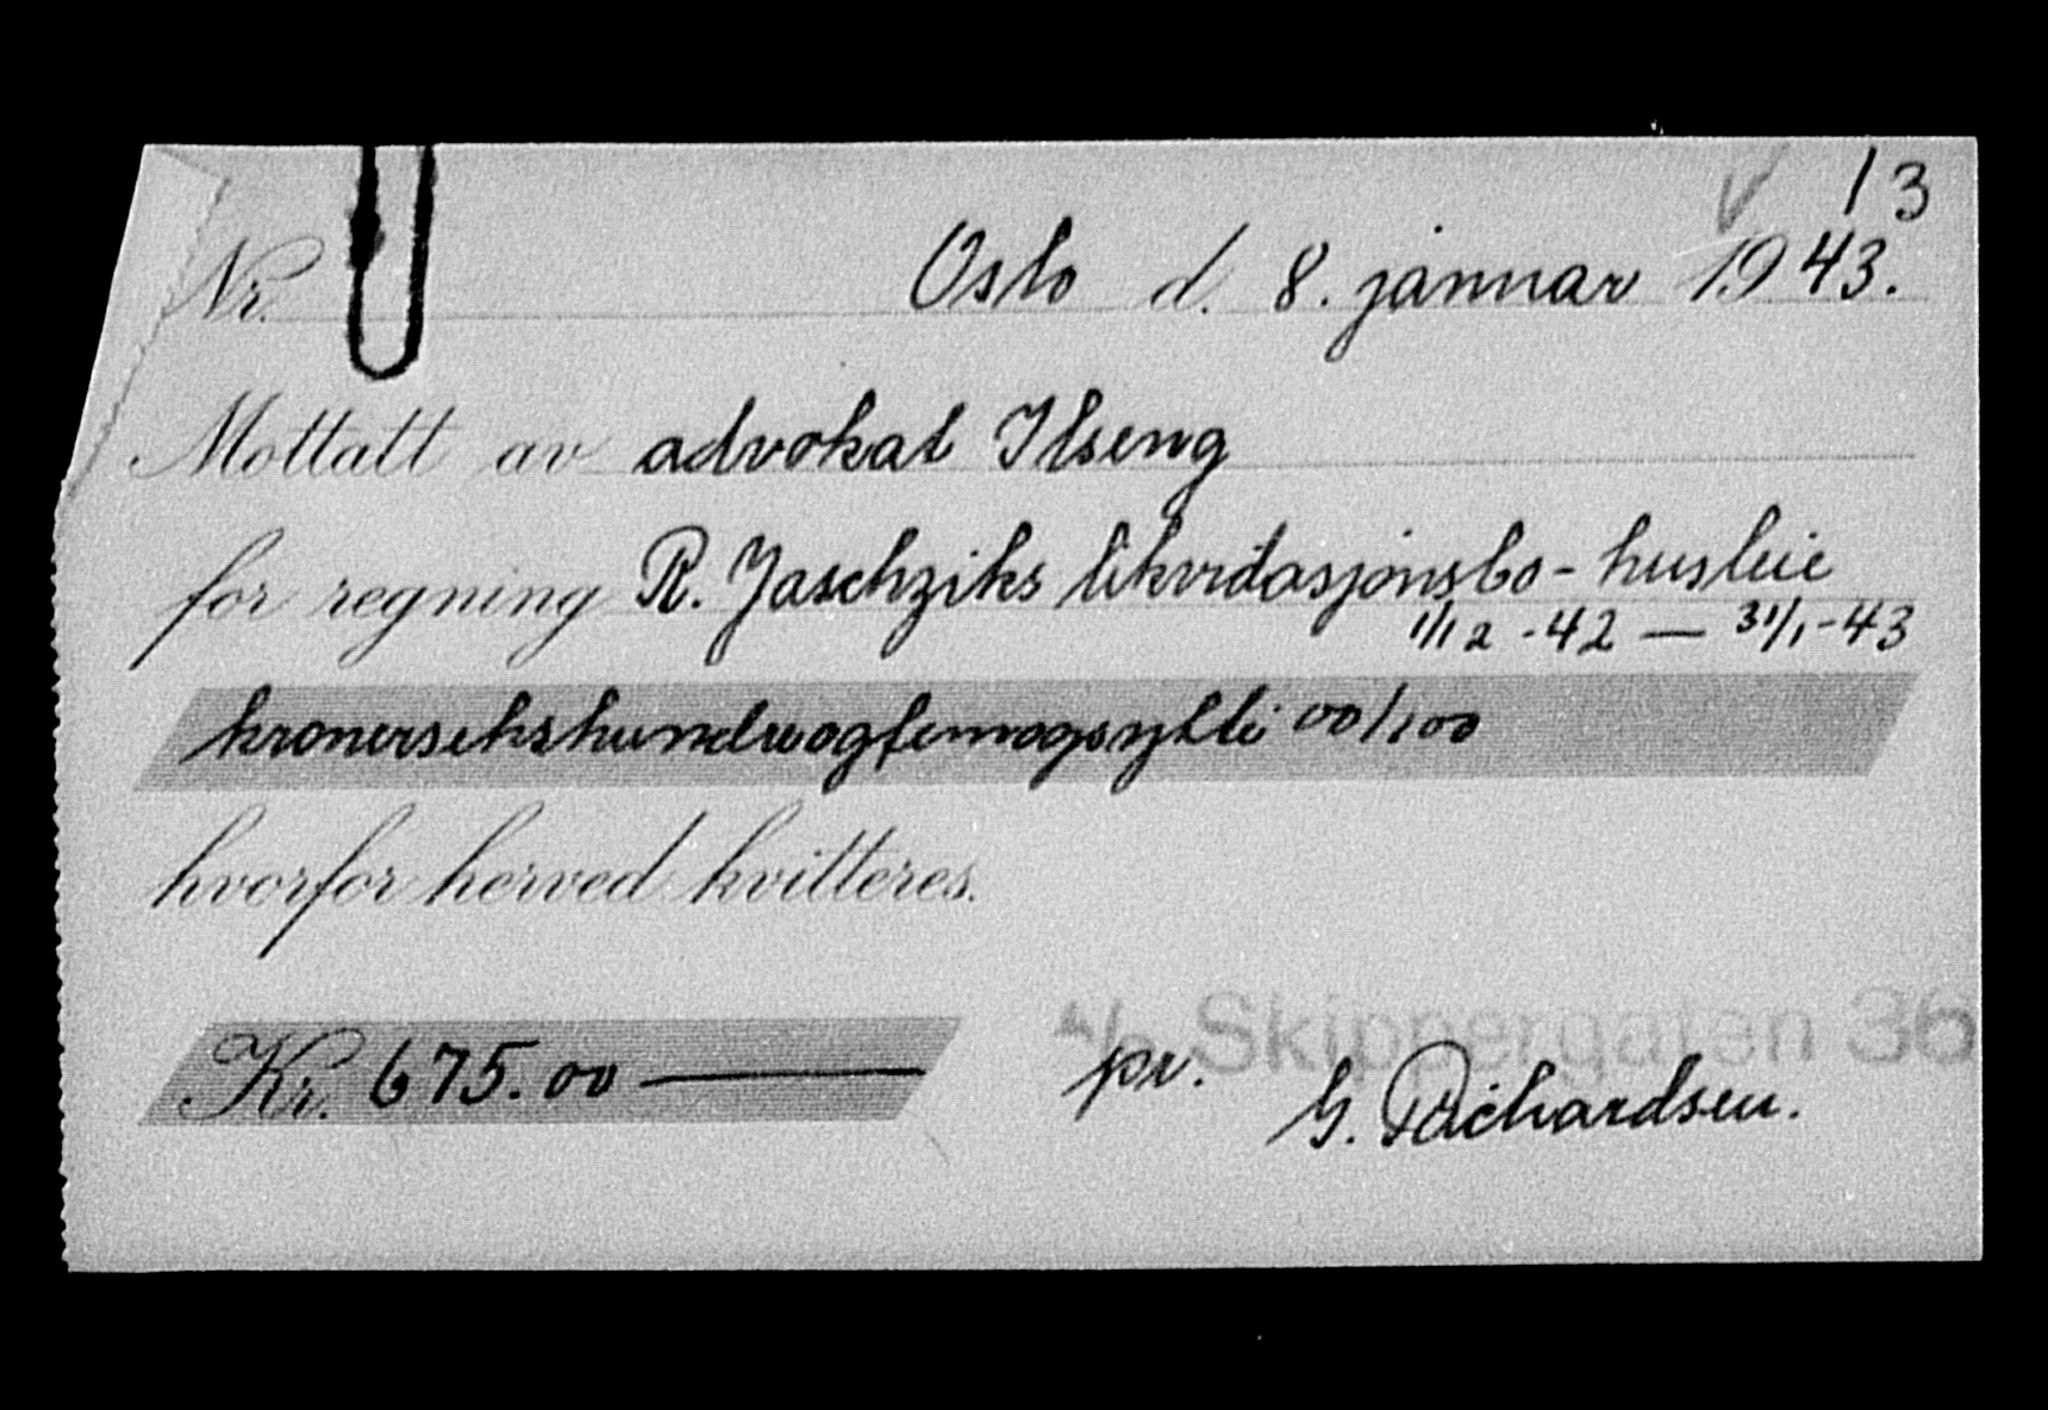 13
Nr. Oslo d. 8. januar 1943.
Mottatt av advokat Ilseng
for regning R. Jaschziks likvidasjonsbo - husleie
1/12 - 42 — 31/1 - 43
kronersekshundreogfemogsytti 00/100
hvorfor herved kvitteres.
A/S Skippergaten 36
Kr. 675.00 — pr. G. Richardsen.